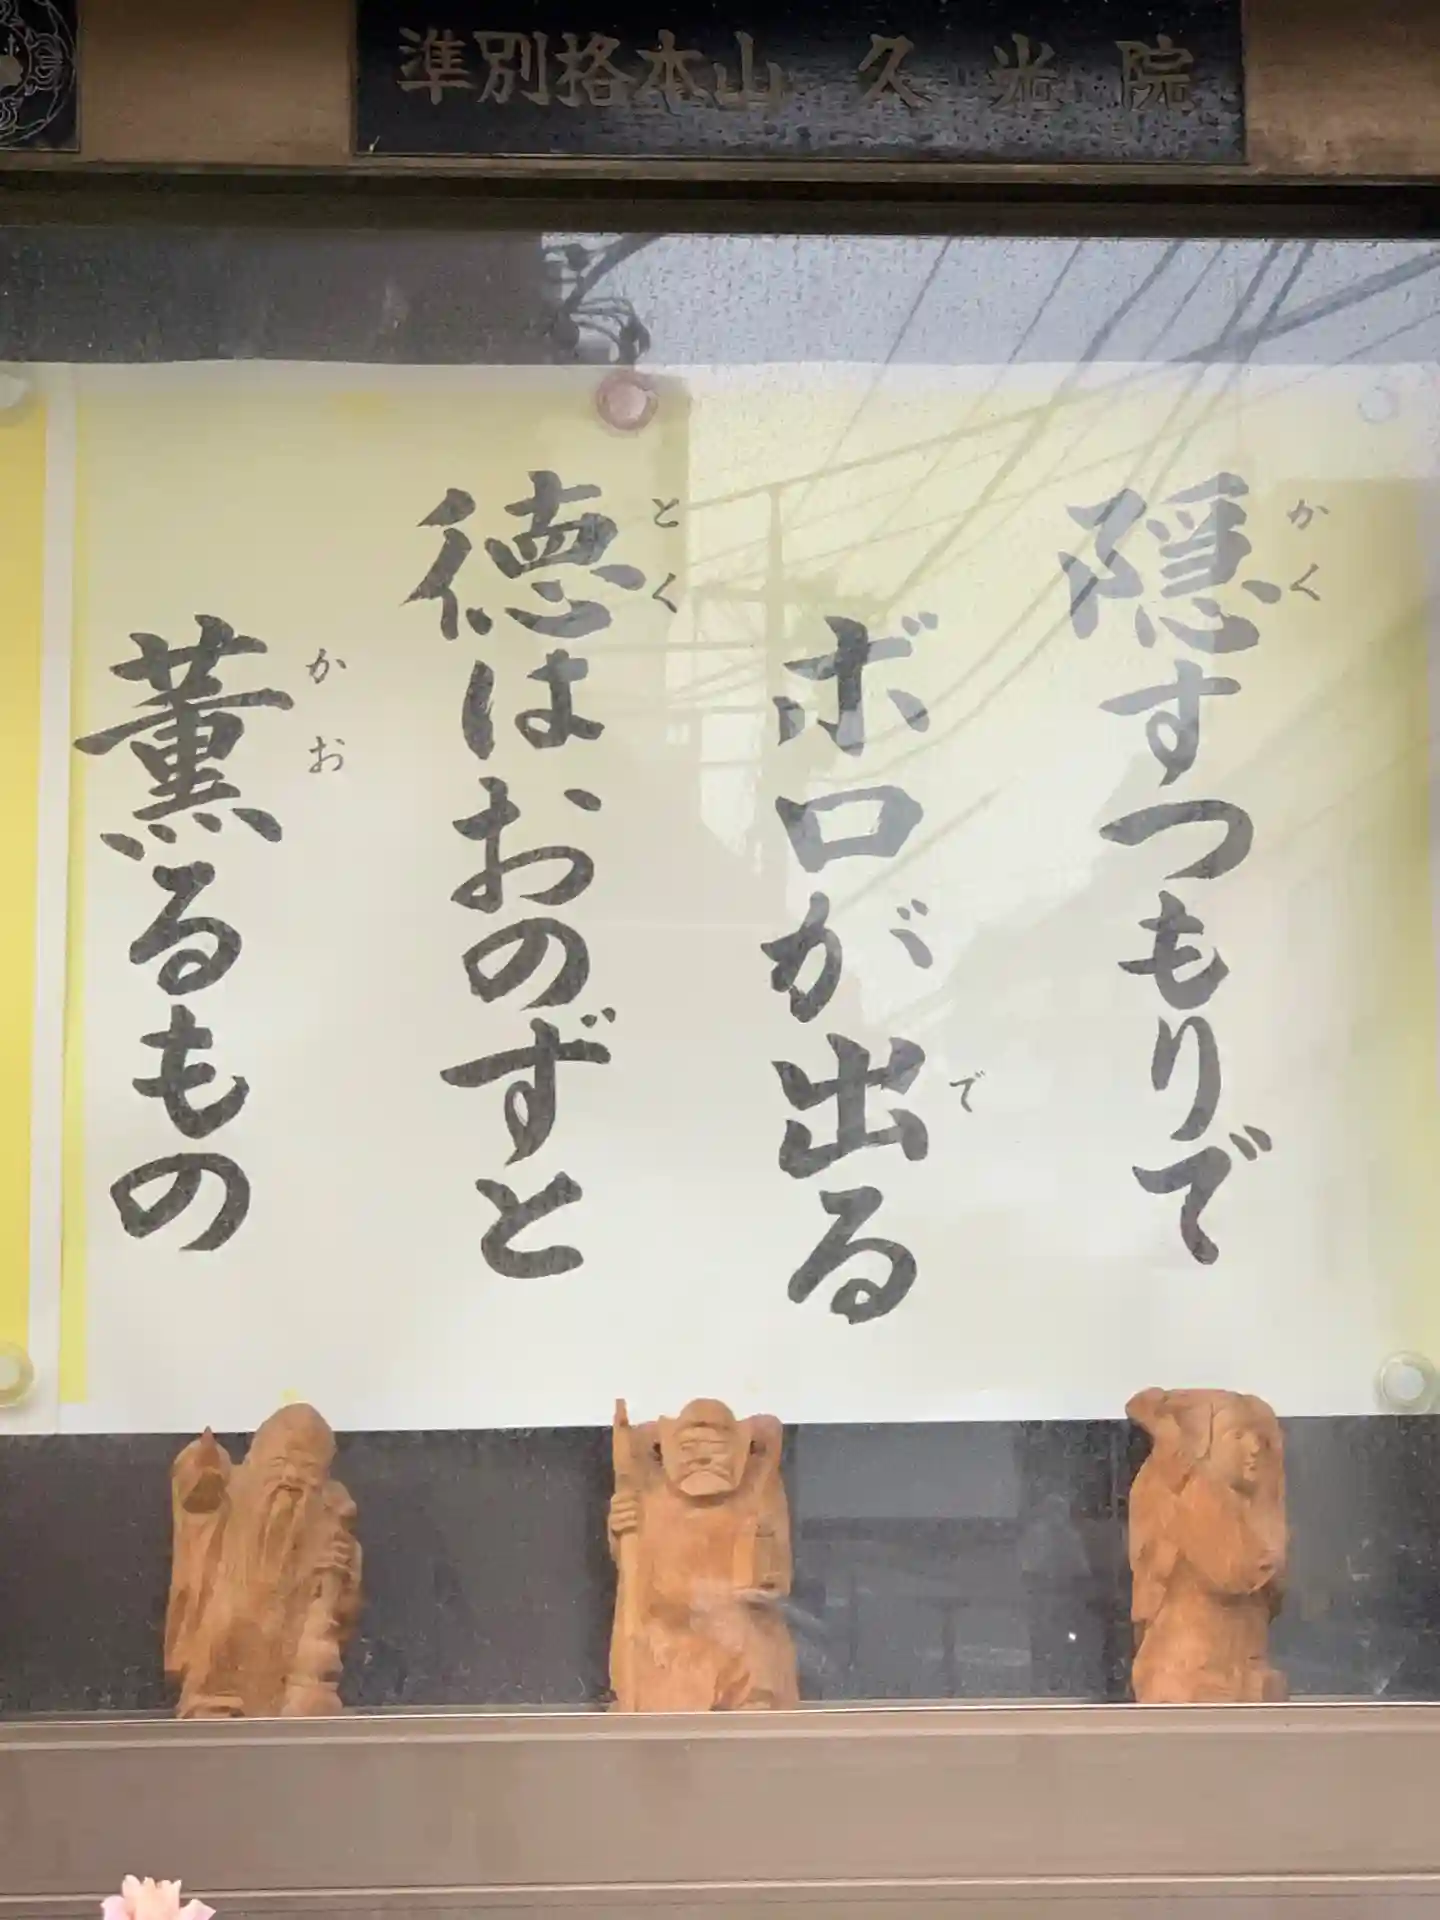 準別格本山 久光院
隠すつもりで
かく
ボロが出る
で
徳はおのずと
とく
薫るもの
かお